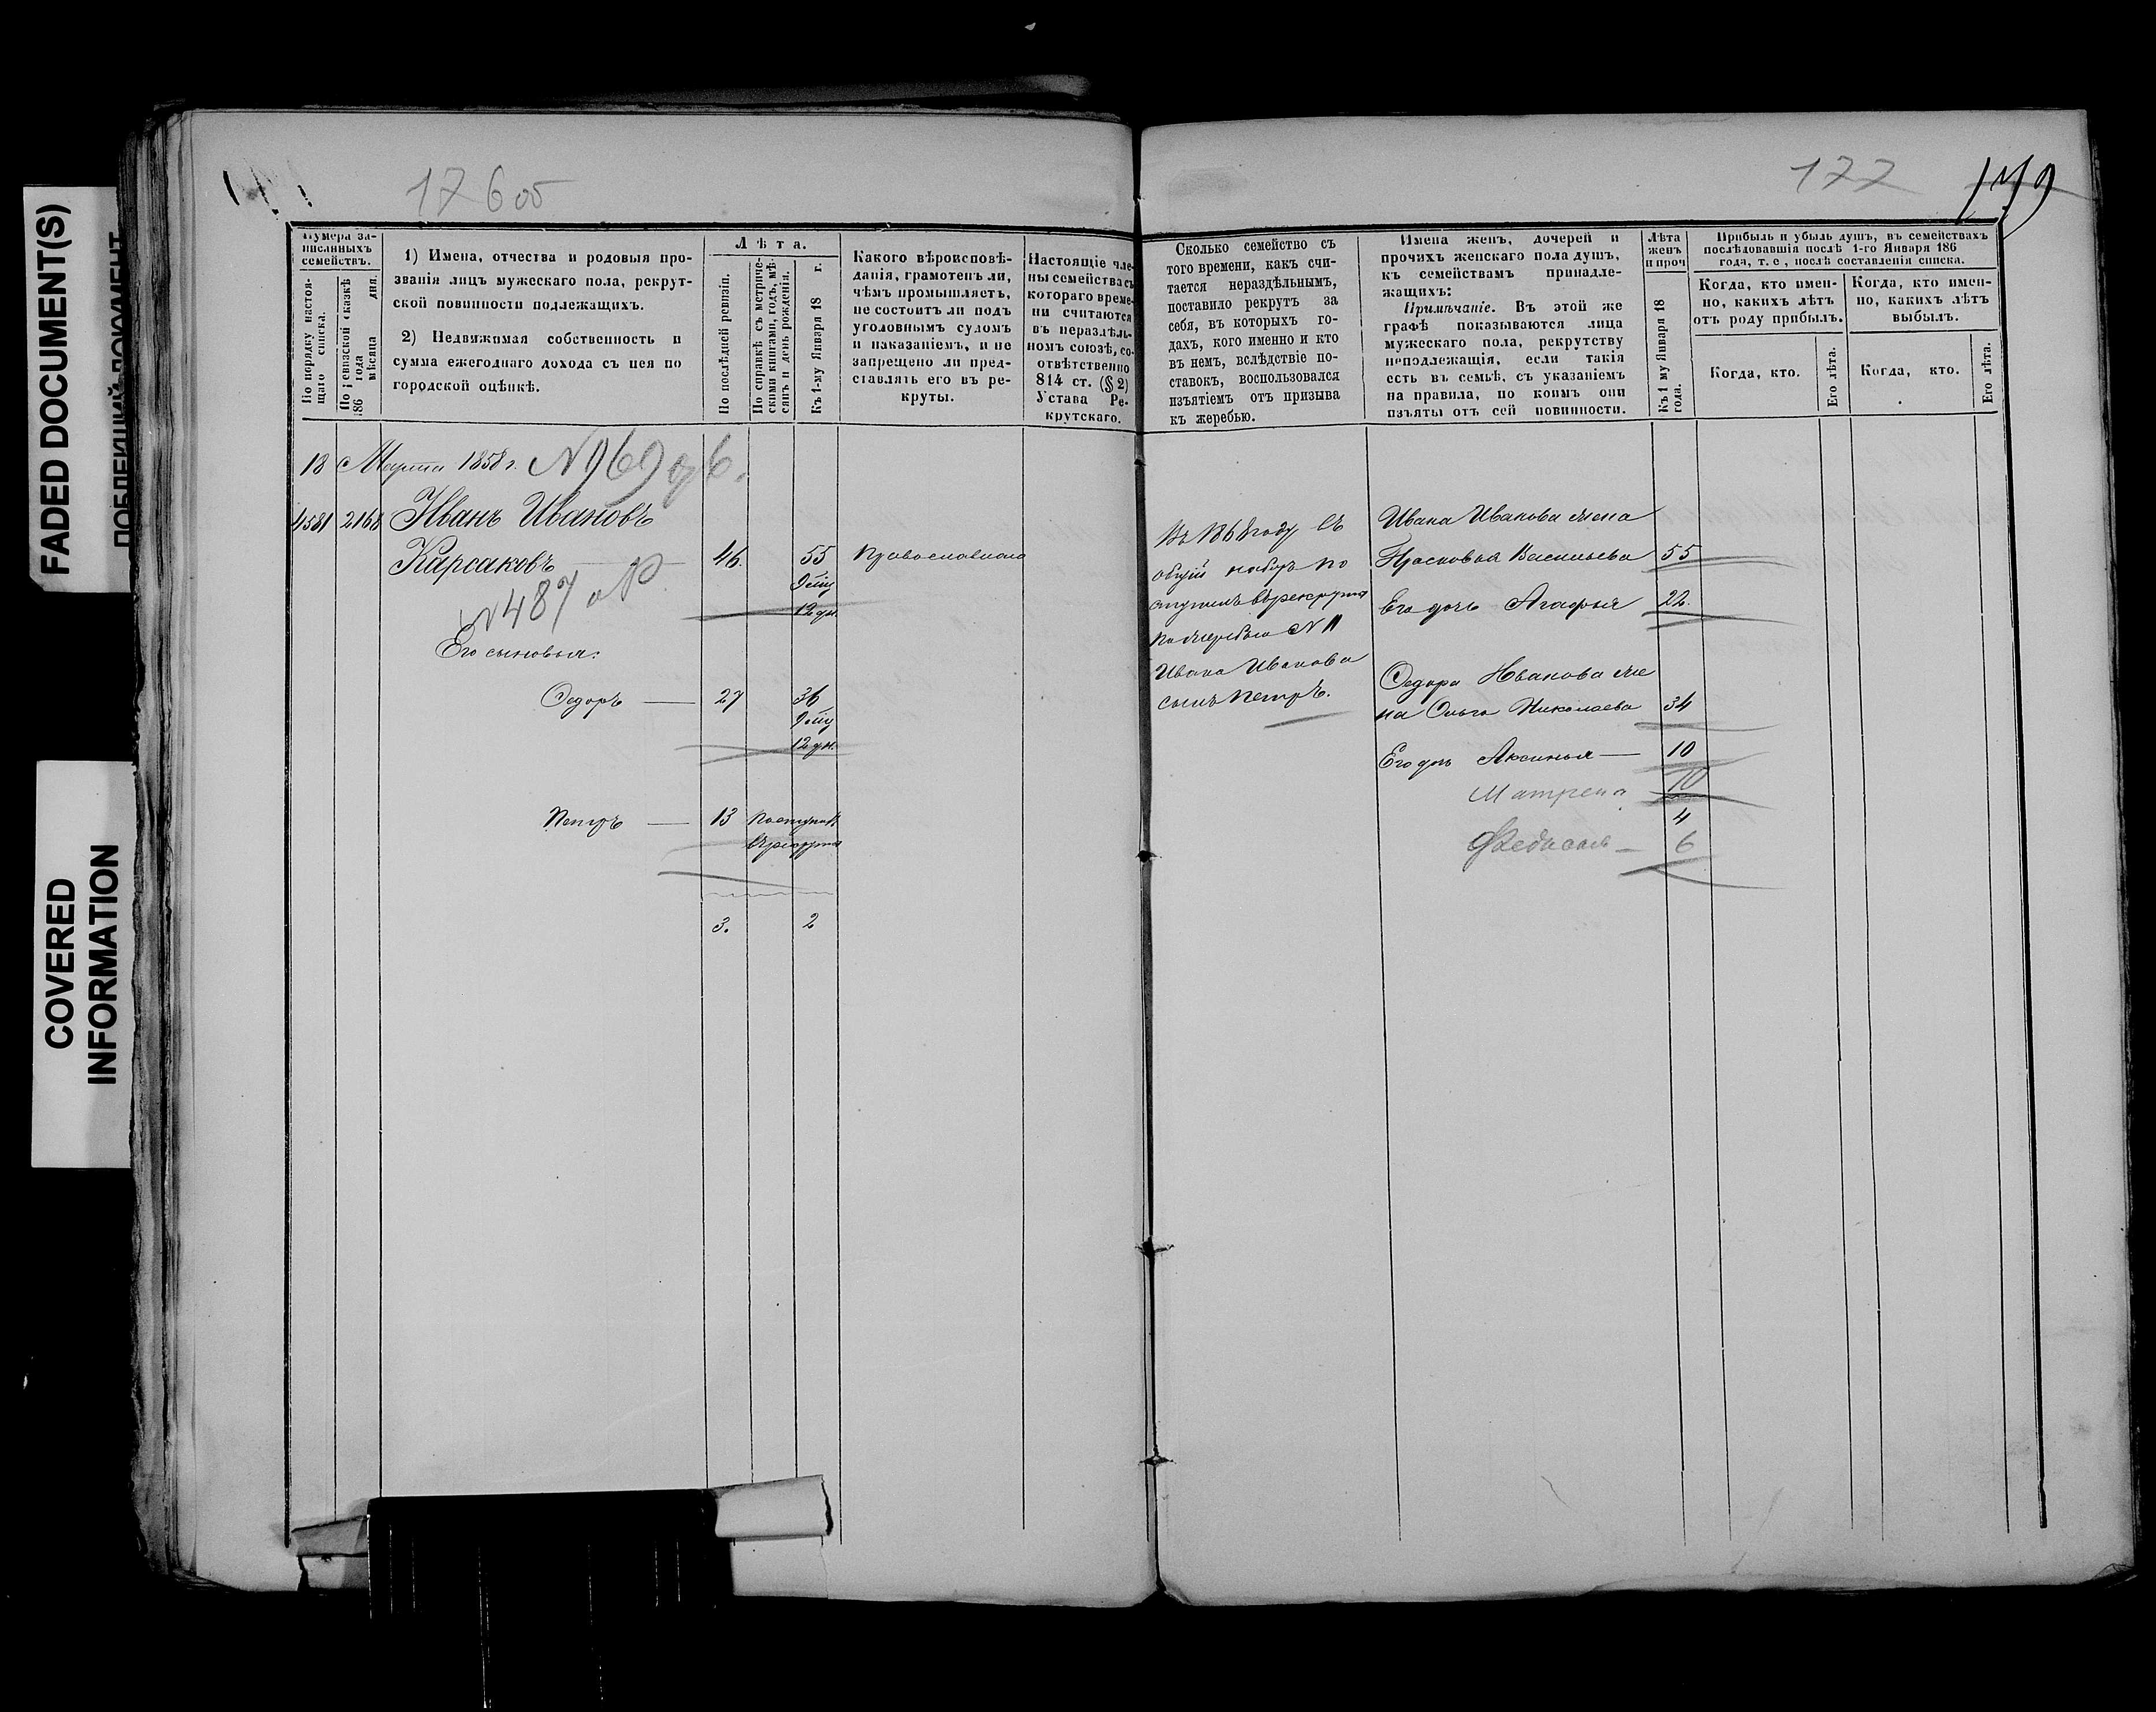 FADED DOCUMENT(S)
COVERED
INFORMATION
176об
177
179
Нумера за-
писанныхъ
семействъ.
По порядку настоя-
щаго списка.
По ревизской сказкѣ
186 года
мѣсяца дня.
1) Имена, отчества и родовыя про-
званія лицъ мужескаго пола, рекрут-
ской повинности подлежащихъ.
2) Недвижимая собственность и
сумма ежегоднаго дохода съ нея по
городской оцѣнкѣ.
Лѣта.
По послѣдней ревизіи.
По справкѣ съ метриче-
скими книгами, годъ, мѣ-
сяцъ и день рожденія.
Къ 1-му Января 18 г.
Какого вѣроисповѣ-
данія, грамотенъ ли,
чѣмъ промышляетъ,
не состоитъ ли подъ
уголовнымъ судомъ
и наказаніемъ, и не
запрещено ли пред-
ставлять его въ ре-
круты.
Настоящіе чле-
ны семейства съ
котораго време-
ни считаются
въ нераздѣль-
номъ союзѣ, со-
отвѣтственно
814 ст. (§ 2)
Устава Ре-
крутскаго.
Сколько семейство съ
того времени, какъ счи-
тается нераздѣльнымъ,
поставило рекрутъ за
себя, въ которыхъ го-
дахъ, кого именно и кто
въ немъ, вслѣдствіе по-
ставокъ, воспользовался
изъятіемъ отъ призыва
къ жеребью.
Имена женъ, дочерей и
прочихъ женскаго пола душъ,
къ семействамъ принадле-
жащихъ:
Примѣчаніе. Въ этой же
графѣ показываются лица
мужескаго пола, рекрутству
неподлежащія, если такія
есть въ семьѣ, съ указаніемъ
на правила, по коимъ они
изъяты отъ сей повинности.
Лѣта
женъ
и проч
Къ 1 му Января 18
года.
Прибыль и убыль душъ, въ семействахъ
послѣдовавшія послѣ 1-го Января 186
года, т. е, послѣ составленія списка.
Когда, кто имен-
но, какихъ лѣтъ
отъ роду прибылъ.
Когда, кто имен-
но, какихъ лѣтъ
выбылъ.
Когда, кто.
Его лѣта.
Когда, кто.
Его лѣта.
18 Марта 1858 г. №969
4581 2168 Иванъ Ивановъ
Карсаковъ 46. 55 Православнаго
12 дн.
№487
Его сыновья:
Ѳедоръ — 27 36
12 дн.
Петръ — 13 поступилъ
въ рекрута
3. 2
Въ 1868 году въ
общій наборъ по
ступилъ въ рекрута
по жеребью № 11
Ивана Иванова
сынъ Петръ.
Ивана Иванова жена
Прасковья Васильева 55
Его дочь Агафья 22.
Ѳедора Иванова же
на Ольга Николаева 34
Его дочь Аксинья — 10
Матрена 10
4
Федосья — 6